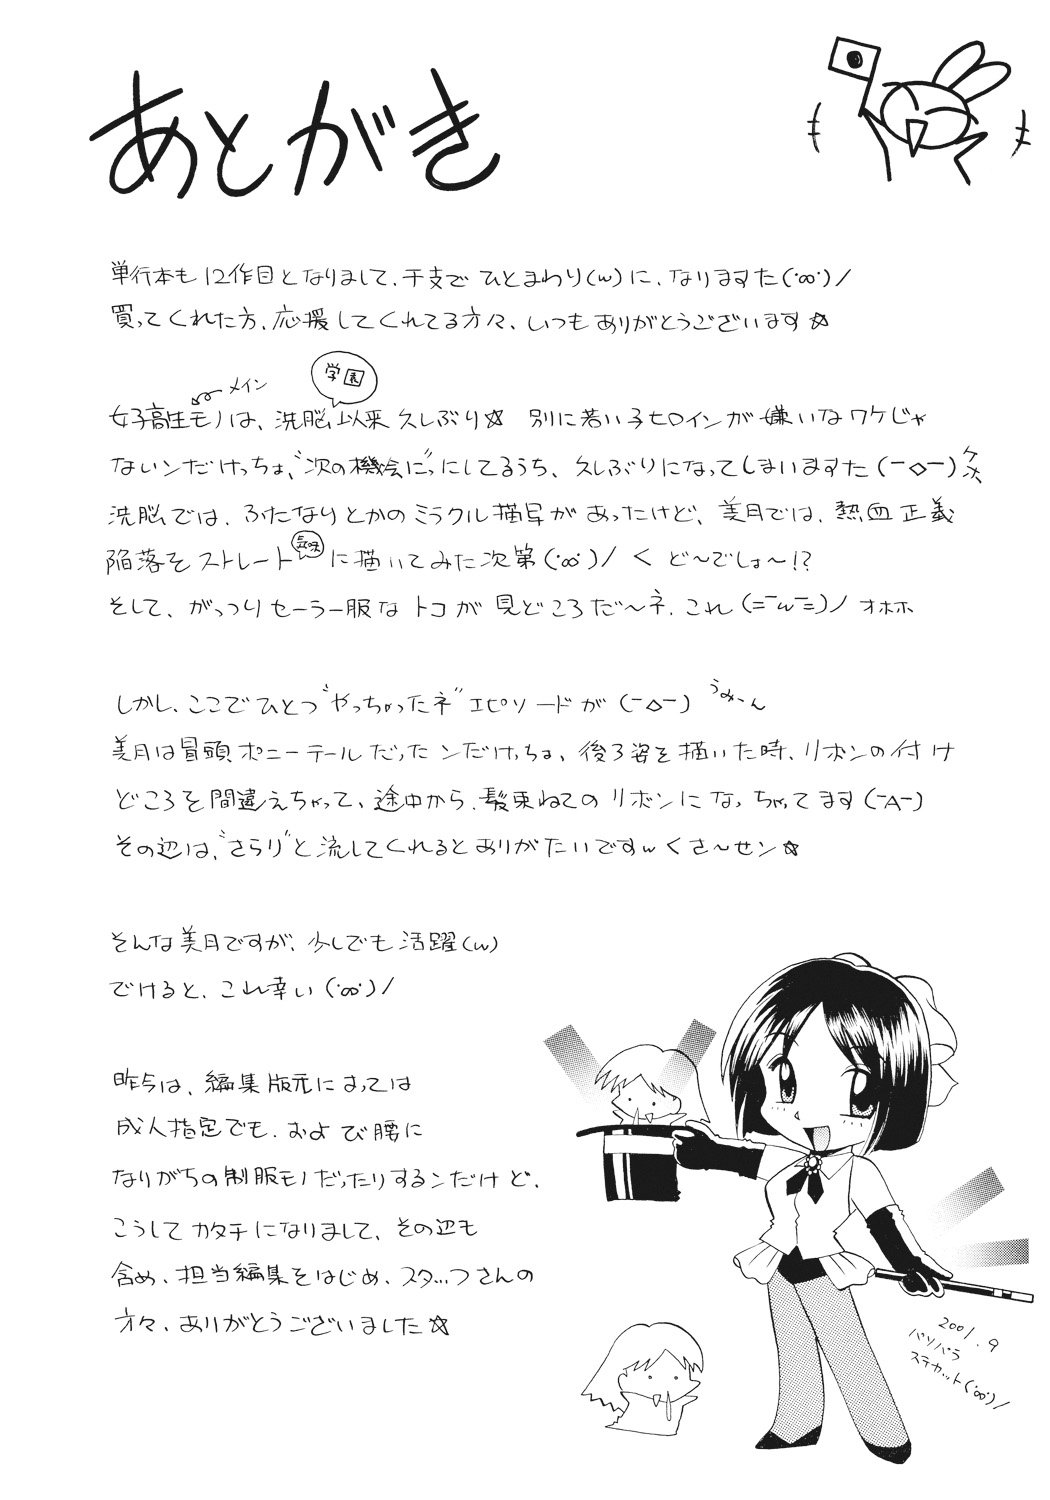 あとがき
単行本も12作目となりまして、干支でひとまわり(w)に、なりますた(･∞･)/
買ってくれた方、応援してくれてる方々、いつもありがとうございます☆
メイン
学園
女子高生モノは、洗脳以来久しぶり☆ 別に若い子ヒロインが嫌いなワケじゃ
ないンだけっちょ、"次の機会に"にしてるうち、久しぶりになってしまいますた(ー◇ー)
洗脳では、ふたなりとかのミラクル描写があったけど、美月では、熱血正義
陥落をストレート気味に描いてみた次第(･∞･)/ く ど〜でしょ〜!?
そして、がっつりセーラー服なトコが見どころだ〜ネ、これ(=ーwー=)/ オホホ
しかし、ここでひとつ"やっちゃったネ"エピソードが(ー◇ー) うみーん
美月は冒頭ポニーテールだったンだけっちょ、後ろ姿を描いた時、リボンの付け
どころを間違えちゃって、途中から、髪束ねてのリボンになっちゃってます(ーAー)
その辺は、"さらり"と流してくれるとありがたいですw くさ〜せン☆
そんな美月ですが、少しでも活躍(w)
できると、これ幸い(･∞･)/
昨今は、編集版元によっては
成人指定でも、および腰に
なりがちの制服モノだったりするンだけど、
こうしてカタチになりまして、その辺も
含め、担当編集をはじめ、スタッフさんの
方々、ありがとうございました☆
2001.9
パソパラ
ステカット(･∞･)/